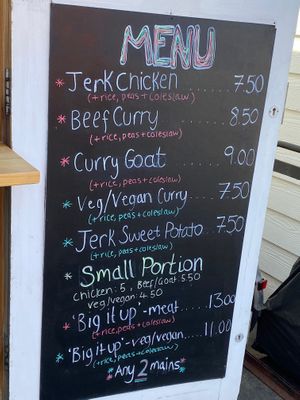 MENU
* Jerk Chicken ...... 7.50
(+rice, peas + coleslaw)
* Beef Curry ........ 8.50
(+rice, peas + coleslaw)
* Curry Goat ....... 9.00
(+rice, peas + coleslaw)
* Veg/Vegan Curry .... 7.50
(+rice, peas + coleslaw)
* Jerk Sweet Potato .. 7.50
(+rice, peas + coleslaw)
* Small Portion
chicken: 5, Beef/Goat: 5.50
veg/vegan: 4.50
* 'Big it up' - meat .... 13.00
(+rice, peas + coleslaw)
* 'Big it up' - veg/vegan .. 11.00
(+rice, peas + coleslaw)
*Any 2 mains*